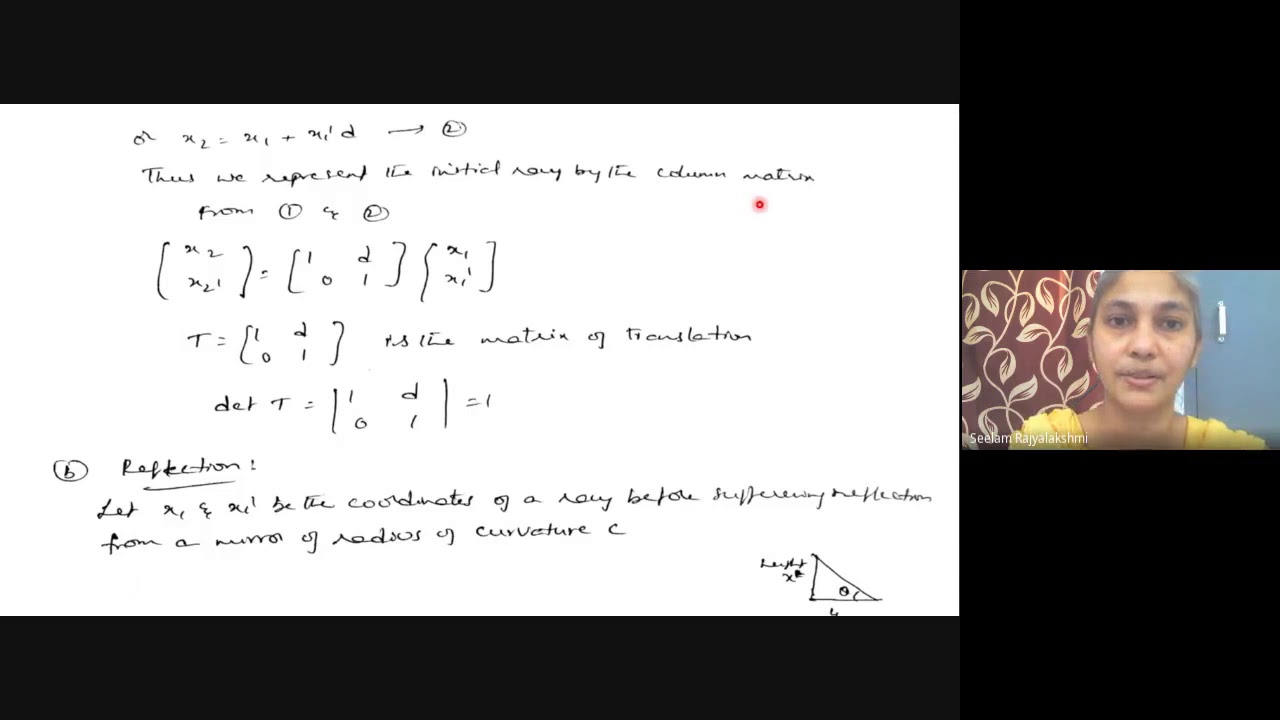 or x₂ = x₁ + x₁' d → ②
Thus we represent the initial ray by the column matrix
from ① & ②
[x₂ x₂'] = [1 d 0 1] [x₁ x₁']
T = [1 d 0 1] is the matrix of translation
det T = |1 d 0 1| = 1
ⓑ Reflection :
Let x₁ & x₁' be the coordinates of a ray before suffering reflection
from a mirror of radius of curvature C
height
x
θ
Seelam Rajyalakshmi